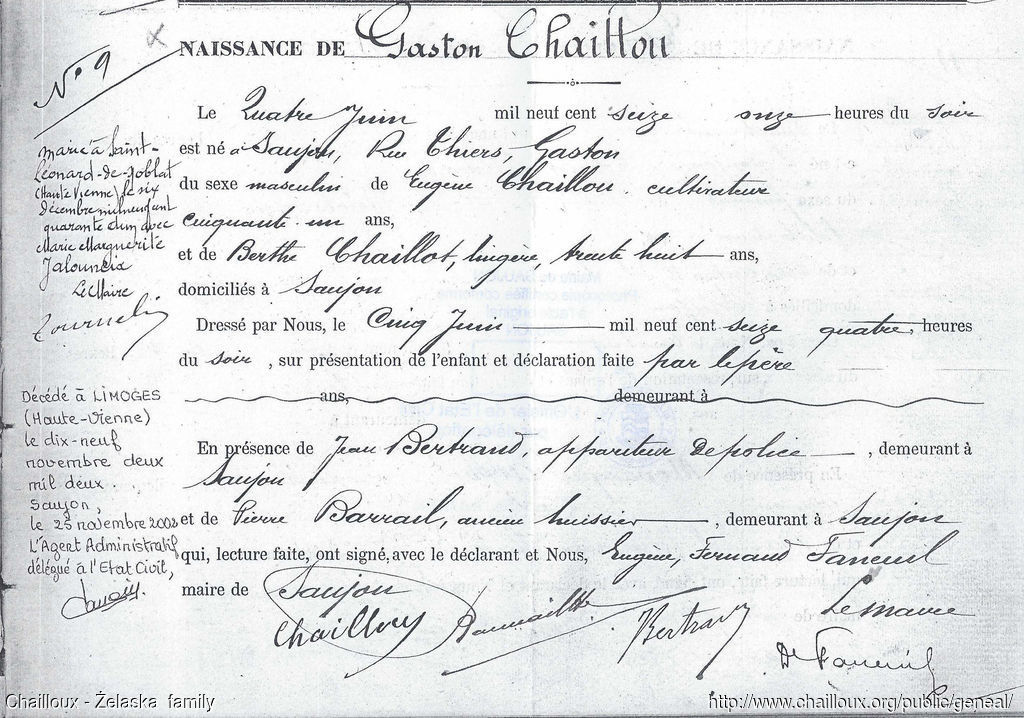 NAISSANCE DE Gaston Chaillou
N° 9
Le Quatre Juin mil neuf cent seize onze heures du soir
est né à Saujon, Rue Thiers, Gaston
du sexe masculin de Eugène Chaillou cultivateur
cinquante-un ans,
et de Berthe Chaillot, lingère, trente huit ans,
domiciliés à Saujon
Dressé par Nous, le Cinq Juin mil neuf cent seize quatre heures
du soir, sur présentation de l'enfant et déclaration faite par le père
ans, demeurant à
En présence de Jean Bertrand, appariteur De police, demeurant à
Saujon
et de Pierre Barrail, ancien huissier, demeurant à Saujon
qui, lecture faite, ont signé avec le déclarant et Nous, Eugène, Fernand Faneuil
maire de Saujon
Chailloux Bertrand Le maire
Dr Faneuil
marié à Saint-
Léonard-de-Noblat
(Haute Vienne) le six
décembre mil neuf cent
quarante et un avec
Marie Marguerite
Jalouneix
Le Maire
Décédé à LIMOGES
(Haute-Vienne)
le dix-neuf
novembre deux
mil deux.
Saujon,
le 25 novembre 2002
L'Agent Administratif
délégué à l'Etat Civil,
Chailloux - Żelaska family
http://www.chailloux.org/public/geneal/